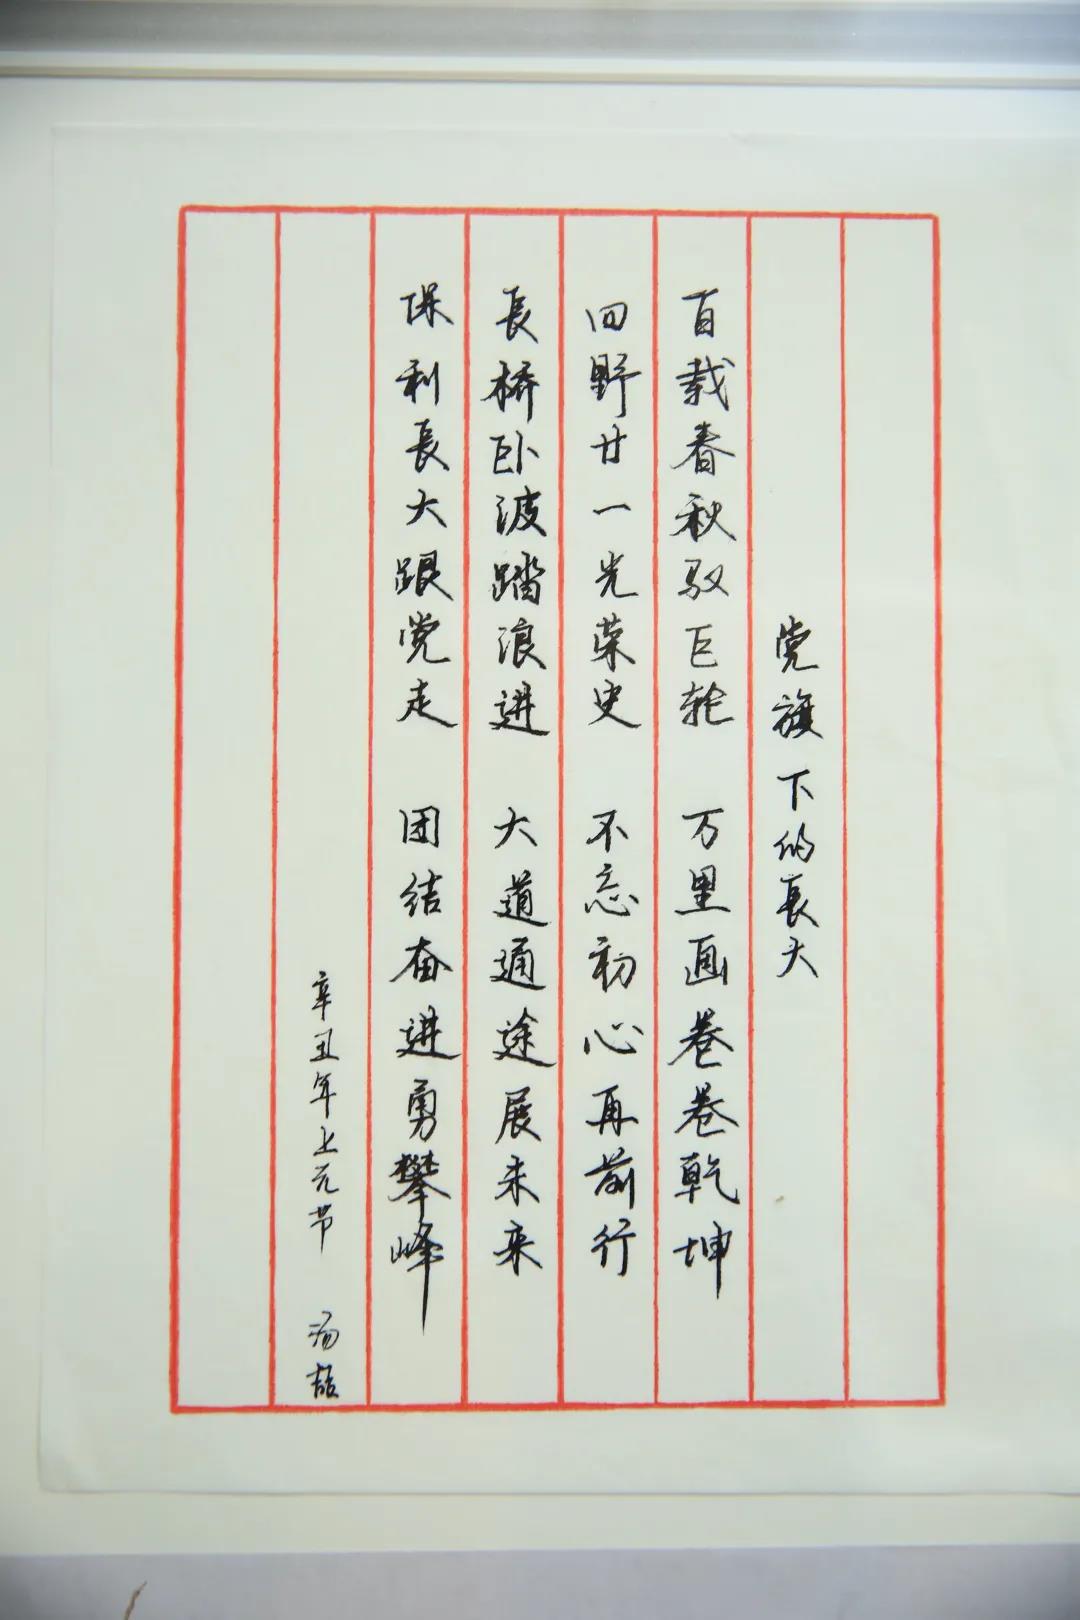 党旗下的長大
百载春秋驭巨轮 万里画卷卷乾坤
四野廿一光荣史 不忘初心再前行
長桥卧波踏浪进 大道通途展未来
保利長大跟党走 团结奋进勇攀峰
辛丑年上元节 汤喆